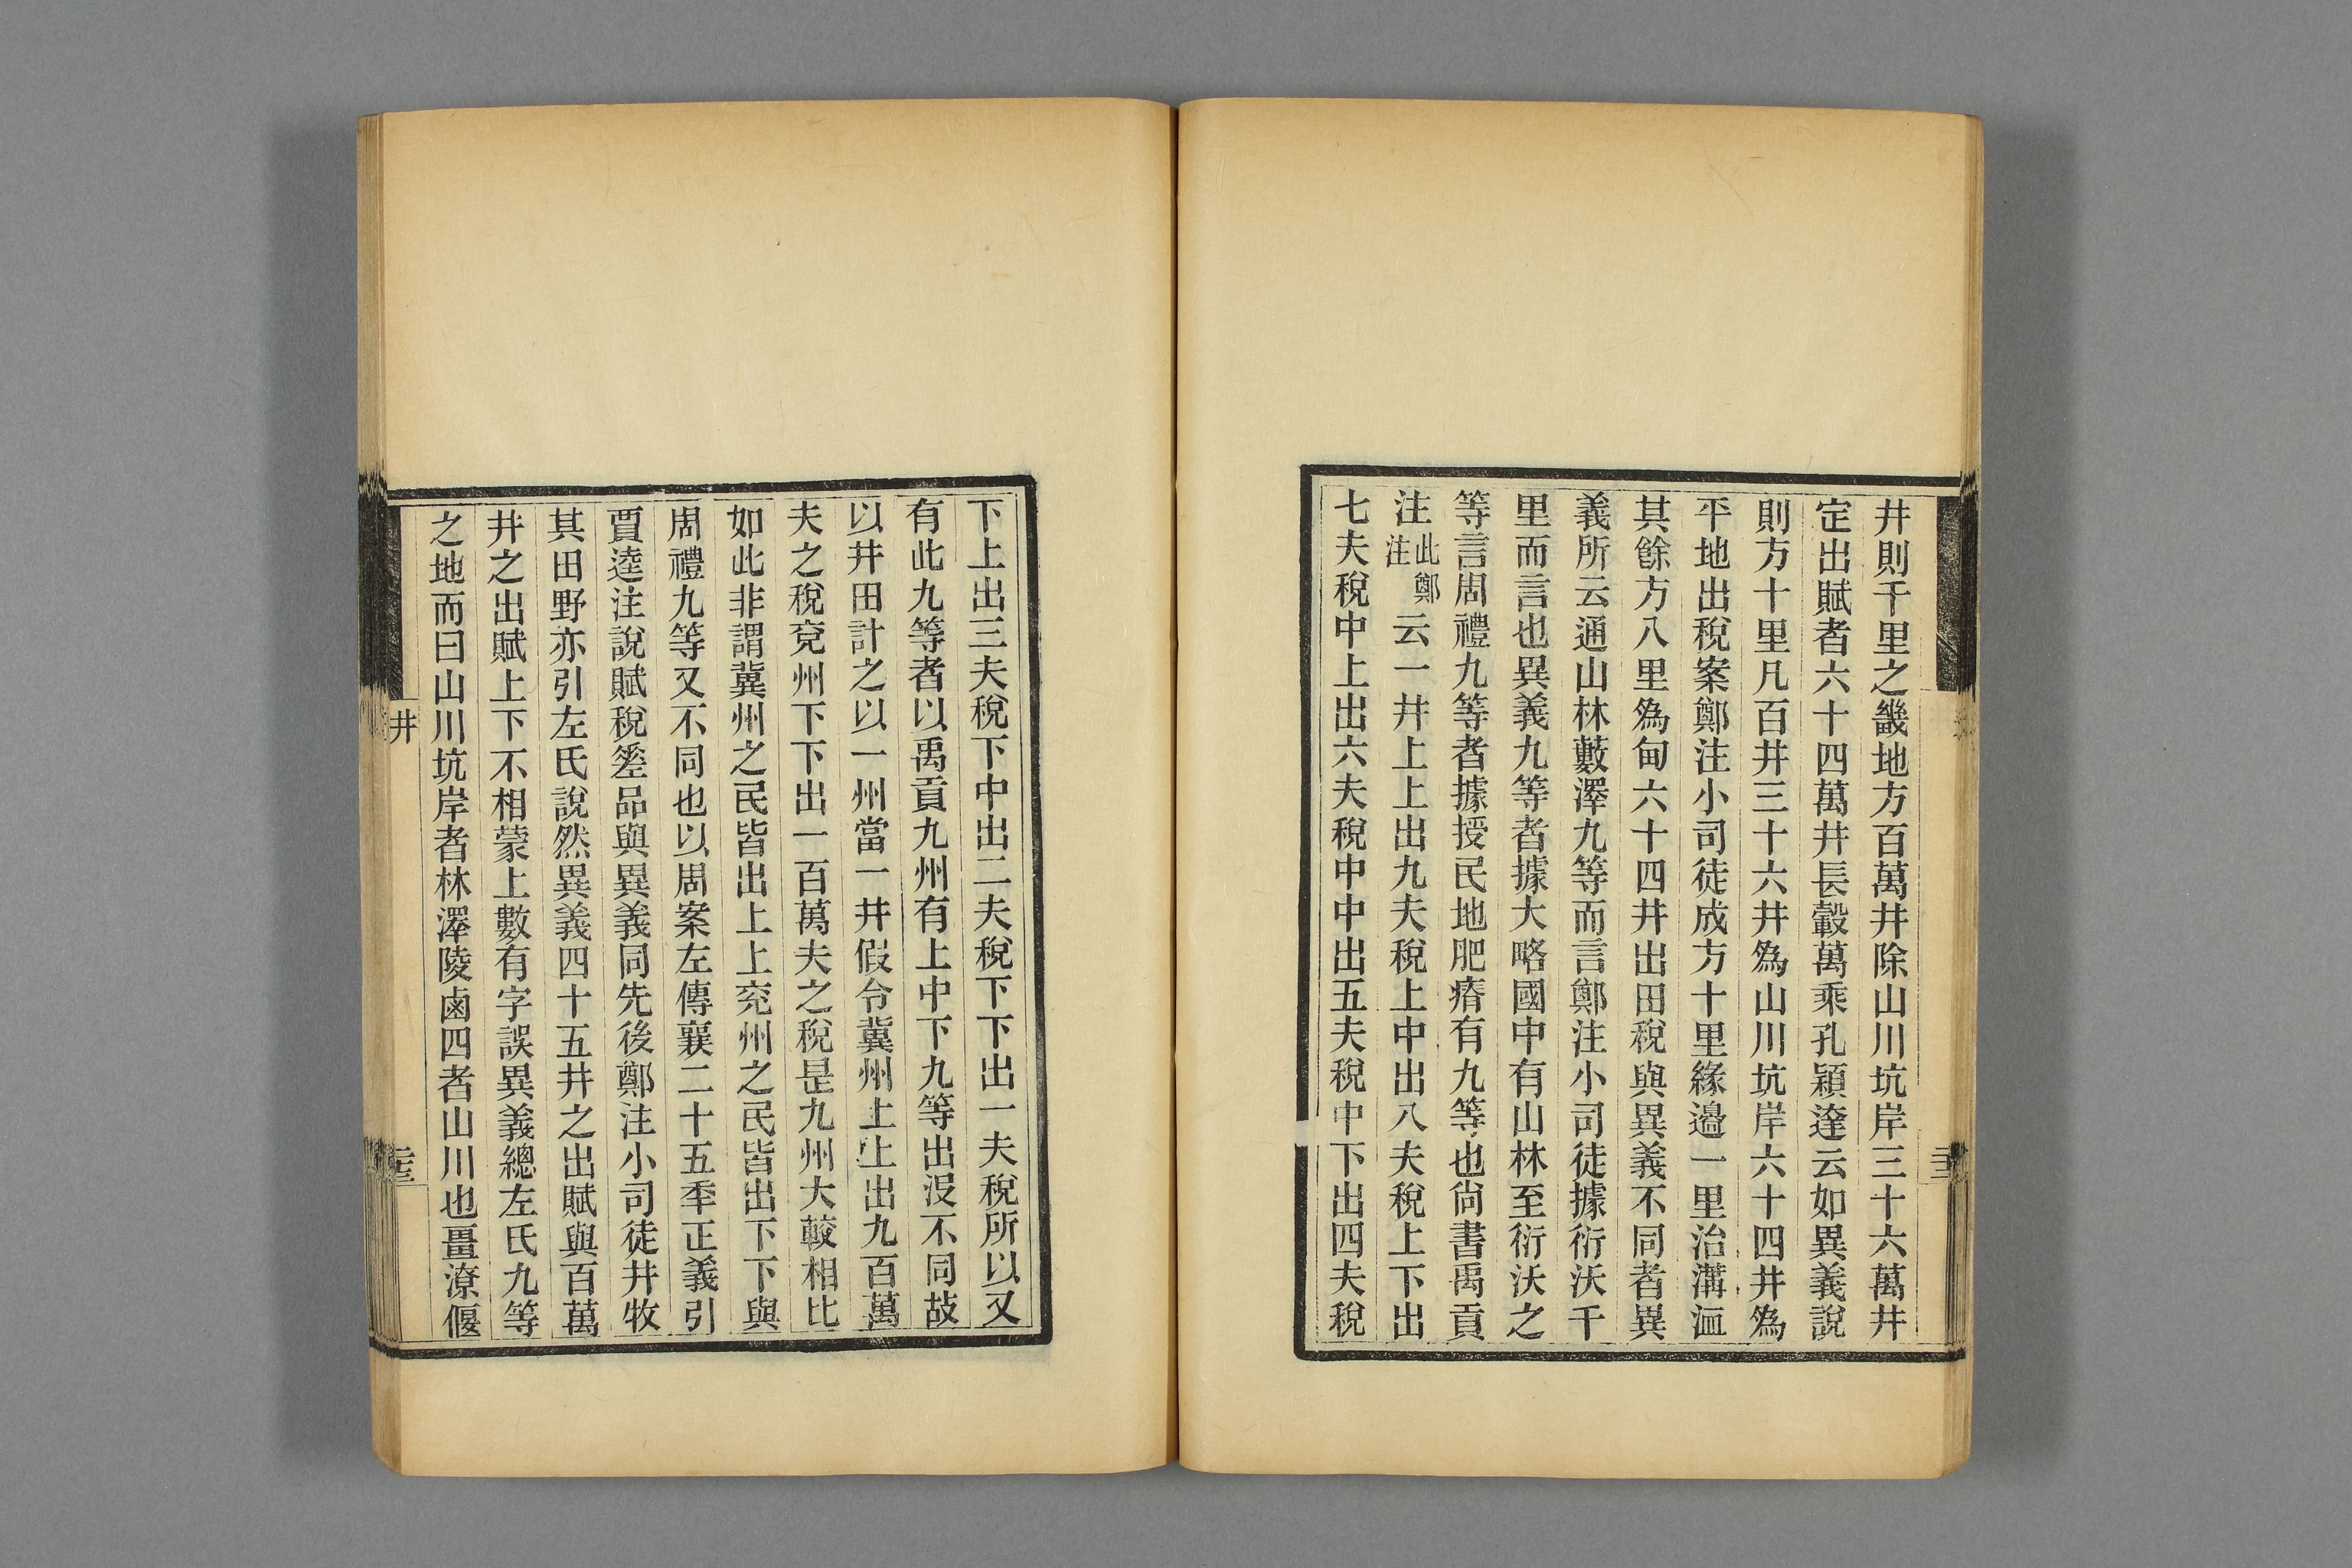 井則千里之畿地方百萬井除山川坑岸三十六萬井
定出賦者六十四萬井長轂萬乘孔穎達云如異義說
則方十里凡百井三十六井爲山川坑岸六十四井爲
平地出稅案鄭注小司徒成方十里緣邉一里治溝洫
其餘方八里爲甸六十四井出田稅與異義不同者異
義所云通山林藪澤九等而言鄭注小司徒據衍沃千
里而言也異義九等者據大略國中有山林至衍沃之
等言周禮九等者據授民地肥瘠有九等也尙書禹貢
注此鄭注云一井上上出九夫稅上中出八夫稅上下出
七夫稅中上出六夫稅中中出五夫稅中下出四夫稅
下上出三夫稅下中出二夫稅下下出一夫稅所以又
有此九等者以禹貢九州有上中下九等出沒不同故
以井田計之以一州當一井假令冀州上上出九百萬
夫之稅兗州下下出一百萬夫之稅是九州大較相比
如此非謂冀州之民皆出上上兗州之民皆出下下與
周禮九等又不同也以周案左傳襄二十五年正義引
賈逵注說賦稅差品與異義同先後鄭注小司徒井牧
其田野亦引左氏說然異義四十五井之出賦與百萬
井之出賦上下不相蒙上數有字誤異義總左氏九等
之地而曰山川坑岸者林澤陵鹵四者山川也畺潦偃
井